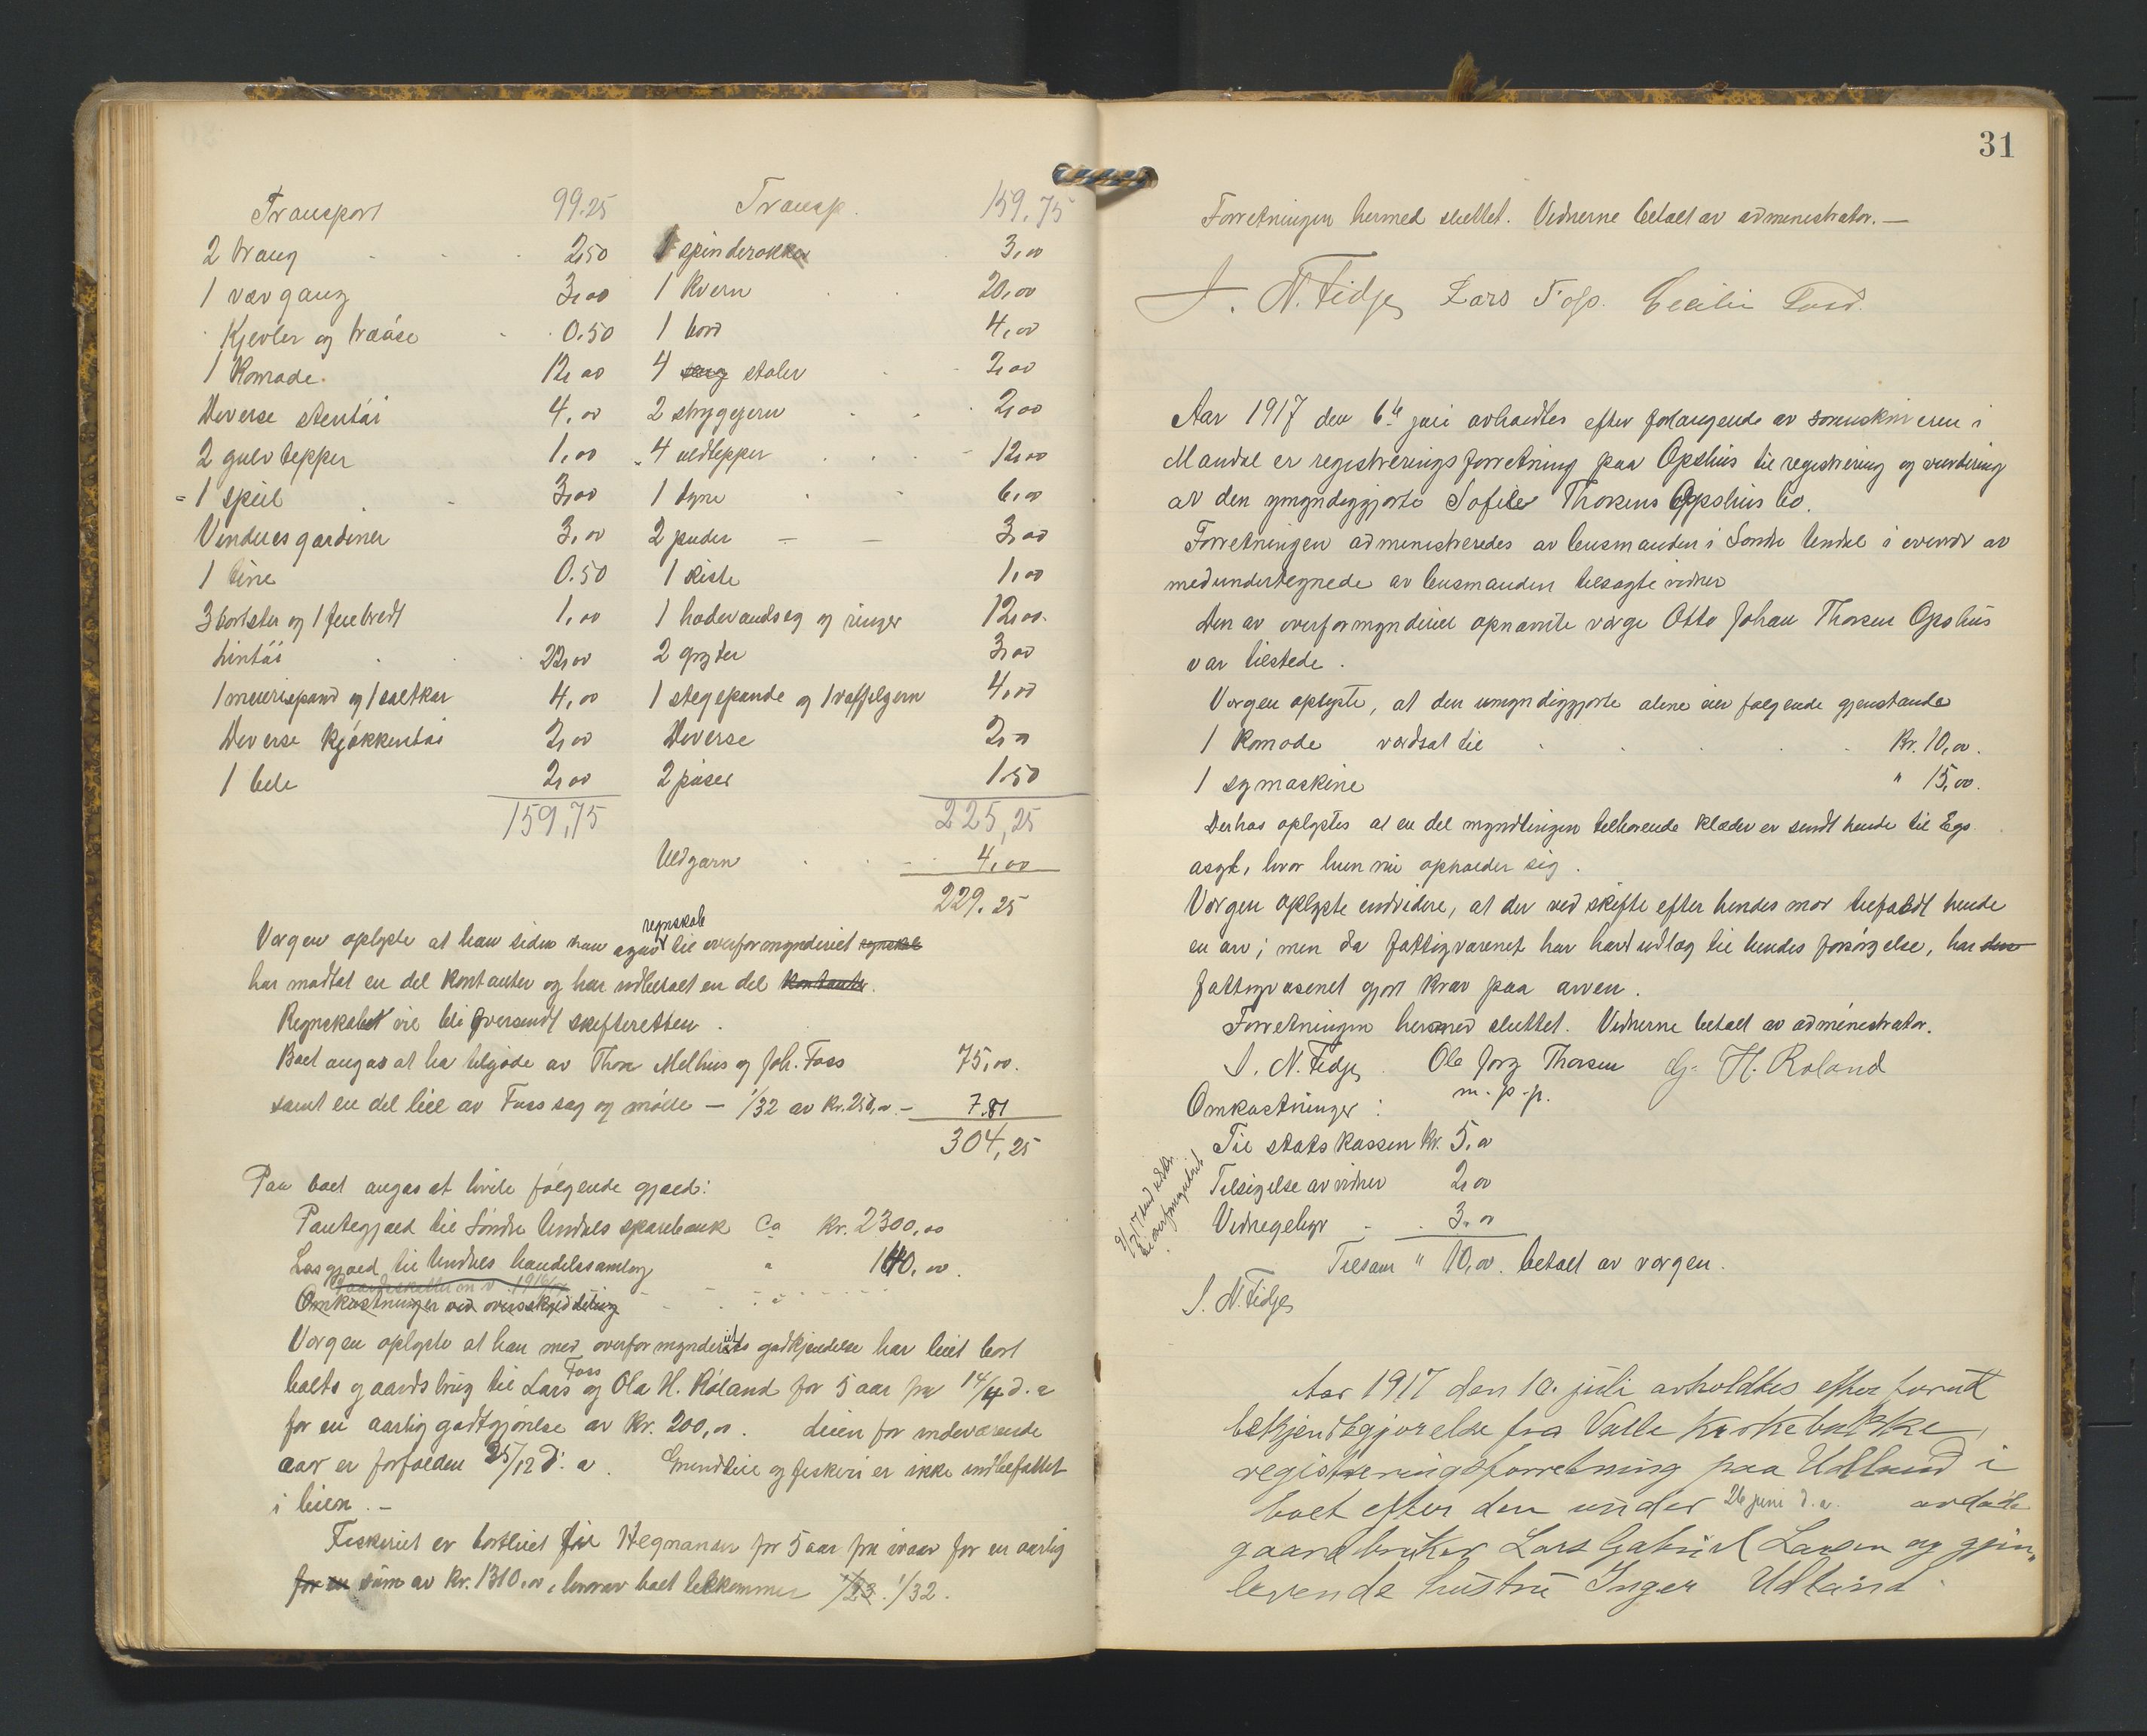 Transport 99.25
2 traug 2,50
1 vævgang 3,00
Kjevler og
1 Komode. 12,00
Diverse stentøi 4,00
2 gulvtepper 1,00
1 speil 3,00
Vinduesgardiner 3,00
1 tine 0.50
3 børster og 1 1,00
Lintøi 22,00
1 meierispand og 1 saltkar 4,00
Diverse Kjøkkentøi 2,00
1 bele 2,00
159,75
Transp. 159,75
1 spinderokker 3,00
1 Kvern 20,00
1 bord 4,00
4 seng stoler 2,00
2 strygejern 2,00
4 uldtepper 12,00
1 dyne 6,00
2 puder 3,00
1 kiste 1,00
1 hodevandsag og ringer 12,00.
2 gryter 3,00
1 stegepande og 1 vaffeljern 4,00
Diverse 2,00
2 1.50
225,25
Uldgarn 4,00
229,25
regnskab
Vergen oplyste at han siden han til overformynderiet regnskab
har modtat en del kontanter og har utbetalt en del kontanter.
Regnskabet vil bli oversendt skifteretten.
Boet angas at ha tilgode av Thore Melhus og Joh. Foss 75,00.
samt en del leie av Foss sag og mølle – 1/32 av kr. 250,00.– 7.81
304,25
Paa boet angas at hvile følgende gjæld:
Pantegjæld til Søndre Undals sparebank Ca Kr. 2300,00
Løsgjæld til Undals handelssamlag " 140,00.
Omkostninger ved
Vergen oplyste at han med overformynderiets godkjendelse har leiet bort
Foss
boets gaardsbrug til Lars og Ola H. Røland for 5 aar fra 14/4 d. a
for en aarlig godtgjørelse av Kr. 200,00. Leien for indeværende
aar er forfalden 25/12 d. a. Grundleie og fiskeri er ikke indbefattet
i leien. –
Fiskeriet er bortleiet til Hegnanær for 5 aar fra ivaar for en aarlig
for en sum av Kr. 1310,00, hvorav boet tilkommer 1/23. 1/32.
31
Forretningen hermed sluttet. Vidnerne betalt av administrator. –
S. N. Fidje Lars Foss. Cecilie
Aar 1917 den 6te juli avholdtes efter forlangende av sorenskriveren i
Mandal er registreringsforretning paa Opshus til registrering og vurdering
av den umyndiggjorte Sofie Thorsens Opshus bo.
Forretningen administreredes av lensmanden i Søndre Undal i overvær av
medundertegnede av lensmanden tilsagte vidner
Den av overformynderiet opnævnte verge Otto Johan Thorsen Opshus
var tilstede.
Vergen oplyste, at den umyndiggjorte alene eier følgende gjenstande
1 Komode verdsat til Kr. 10,00.
1 symaskine " 15,00.
Derhos oplystes at en del myndlingen tilhørende klæder er sendt hende til Egs
asyl, hvor hun nu opholder sig.
Vergen oplyste endvidere, at der ved skifte efter hendes mor tilfaldt hende
en arv; men da fattigvæsenet har havt utlæg til hendes forsørgelse, har den
fattigvæsenet gjort krav paa arven.
Forretningen hermed sluttet. Vidnerne betalt av administrator.
S. N. Fidje Ole Jørg Thorsen G. H. Roland
m. p. p.
Omkostninger:
Til statskassen Kr. 5,00
Tilsigelse av vidner 2,00
Vidnegebyr 3,00
Tilsam " 10,00. betalt av vergen.
S. N. Fidje
Aar 1917 den 10. juli avholdtes efter forut
bekjendtgjørelse fra Valle Kirkebakke,
registreringsforretning paa Udland i
boet efter den under 26 juni d. a. avdøde
gaardbruker Lars Gabriel Larsen og gjen„
levende hustru Inger Udland.